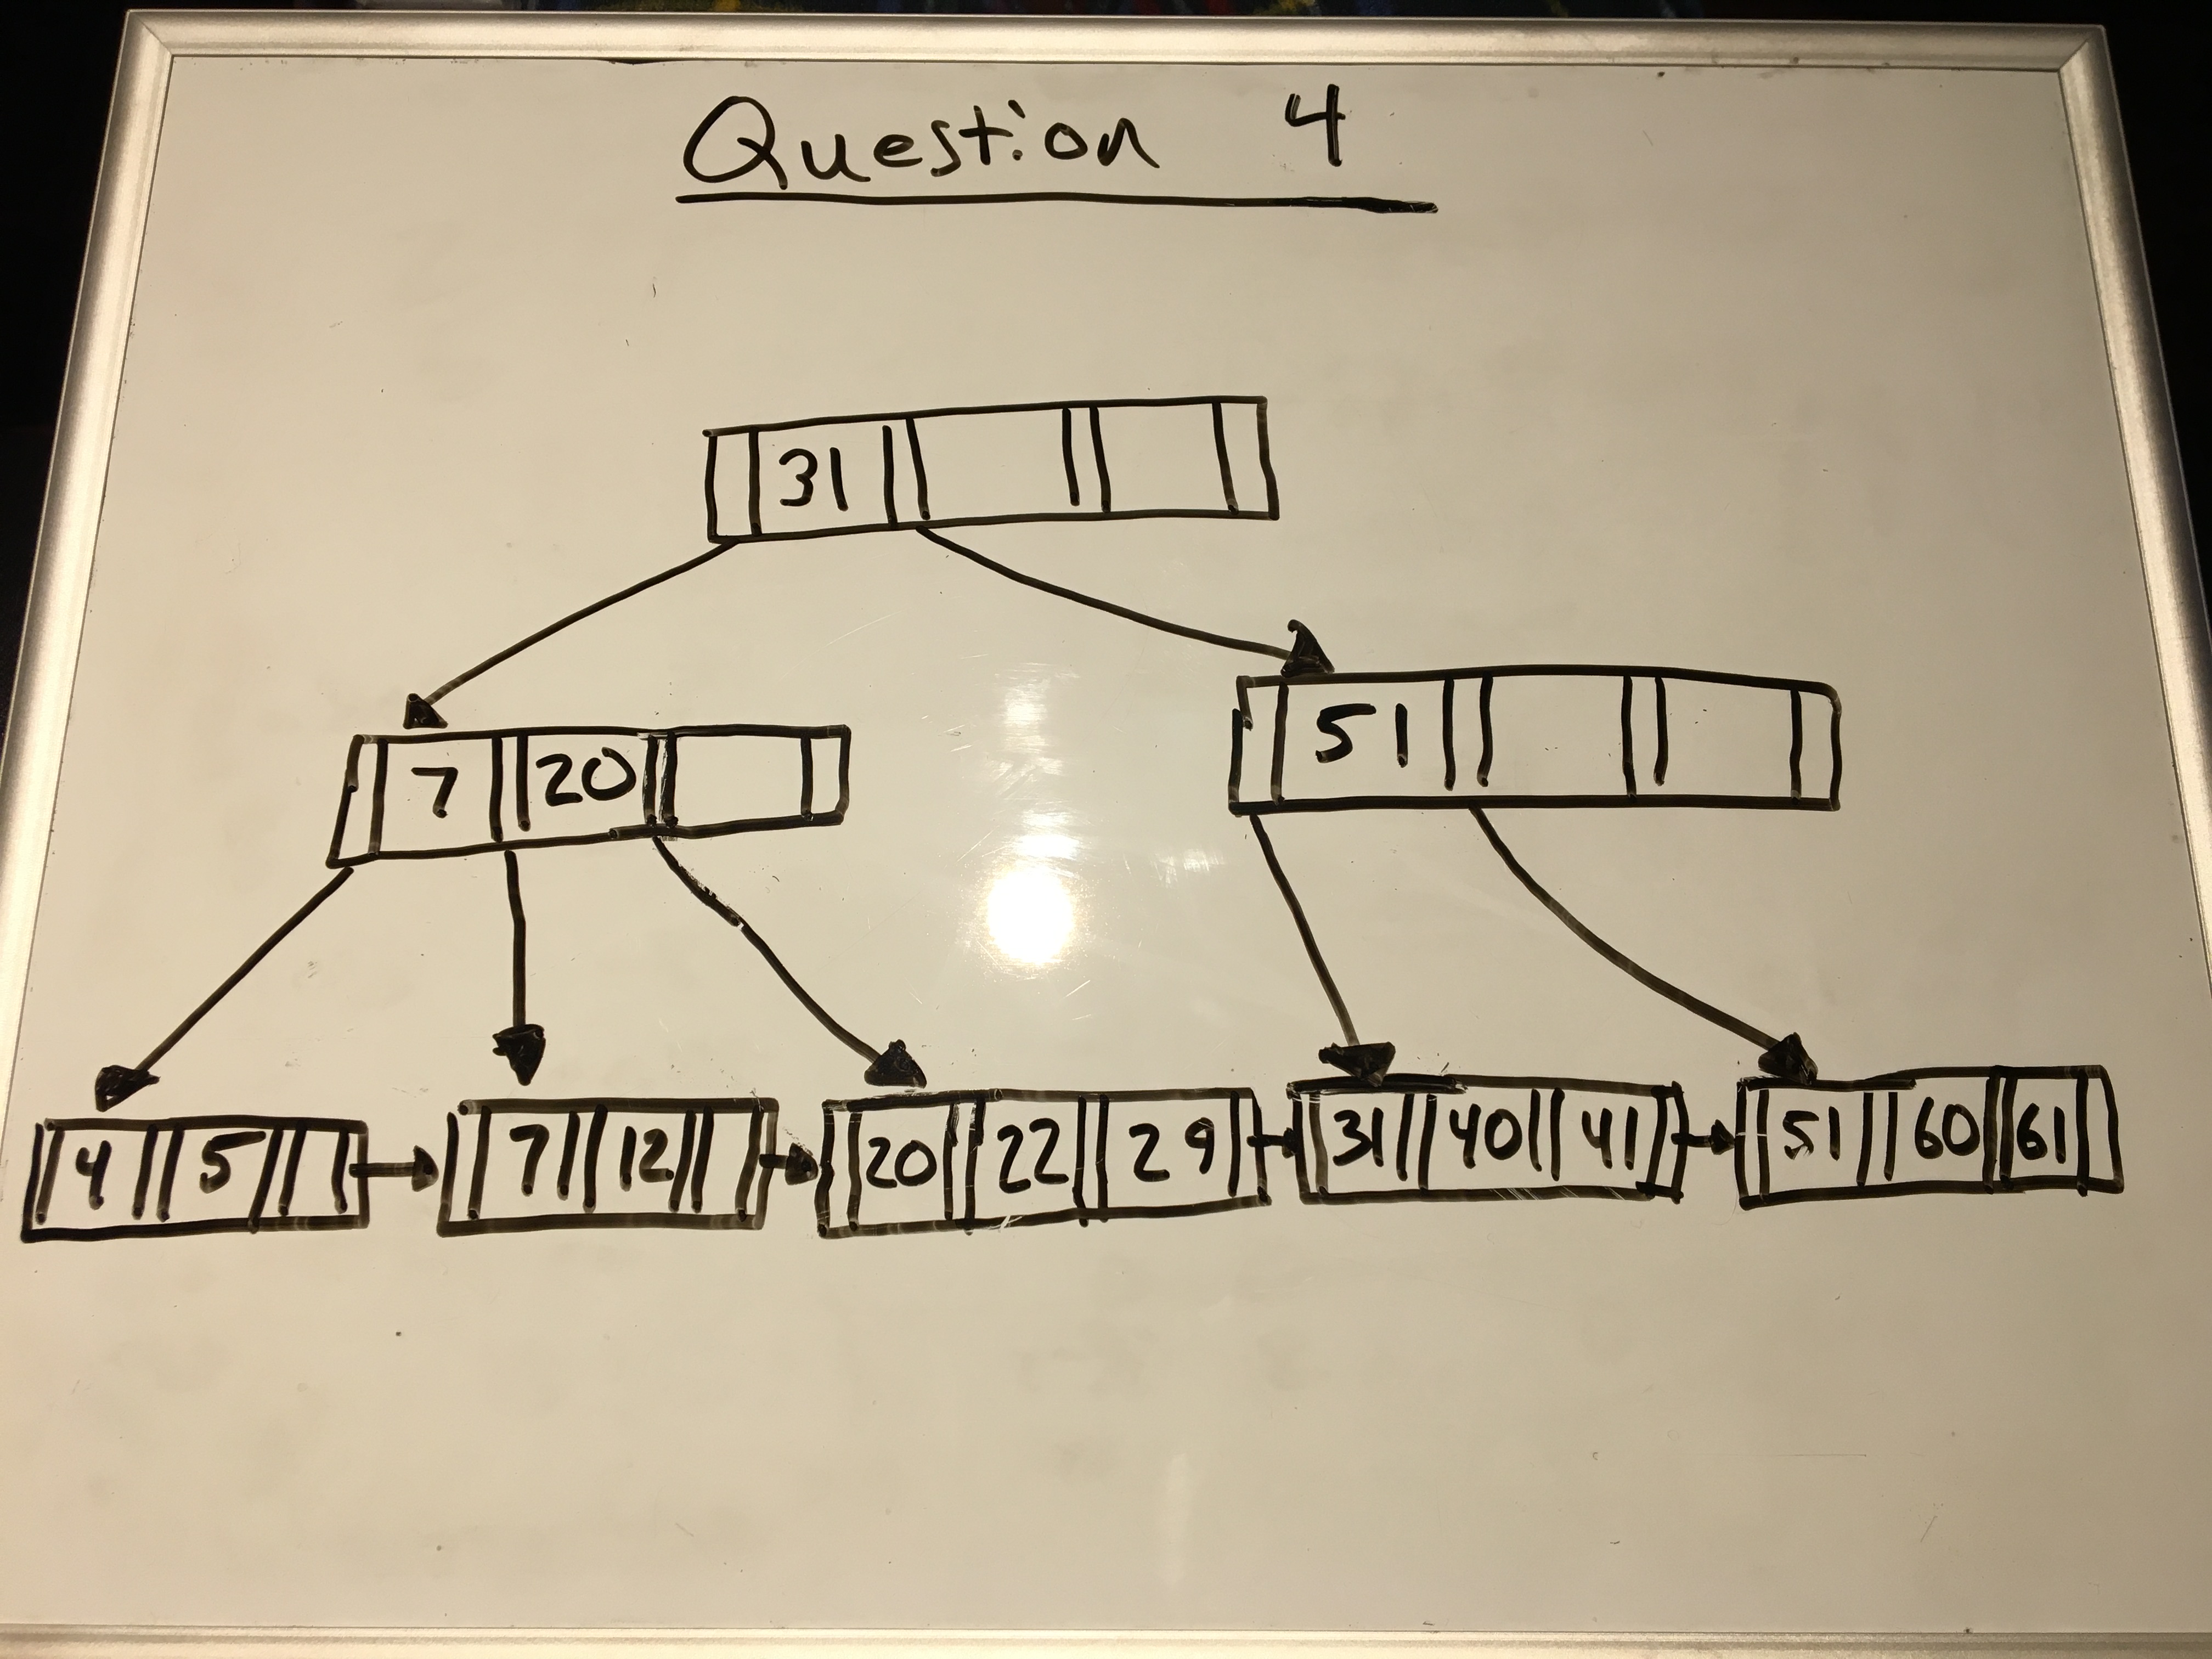 Question 4
31
7 20
51
4 5 7 12 20 22 29 31 40 41 51 60 61